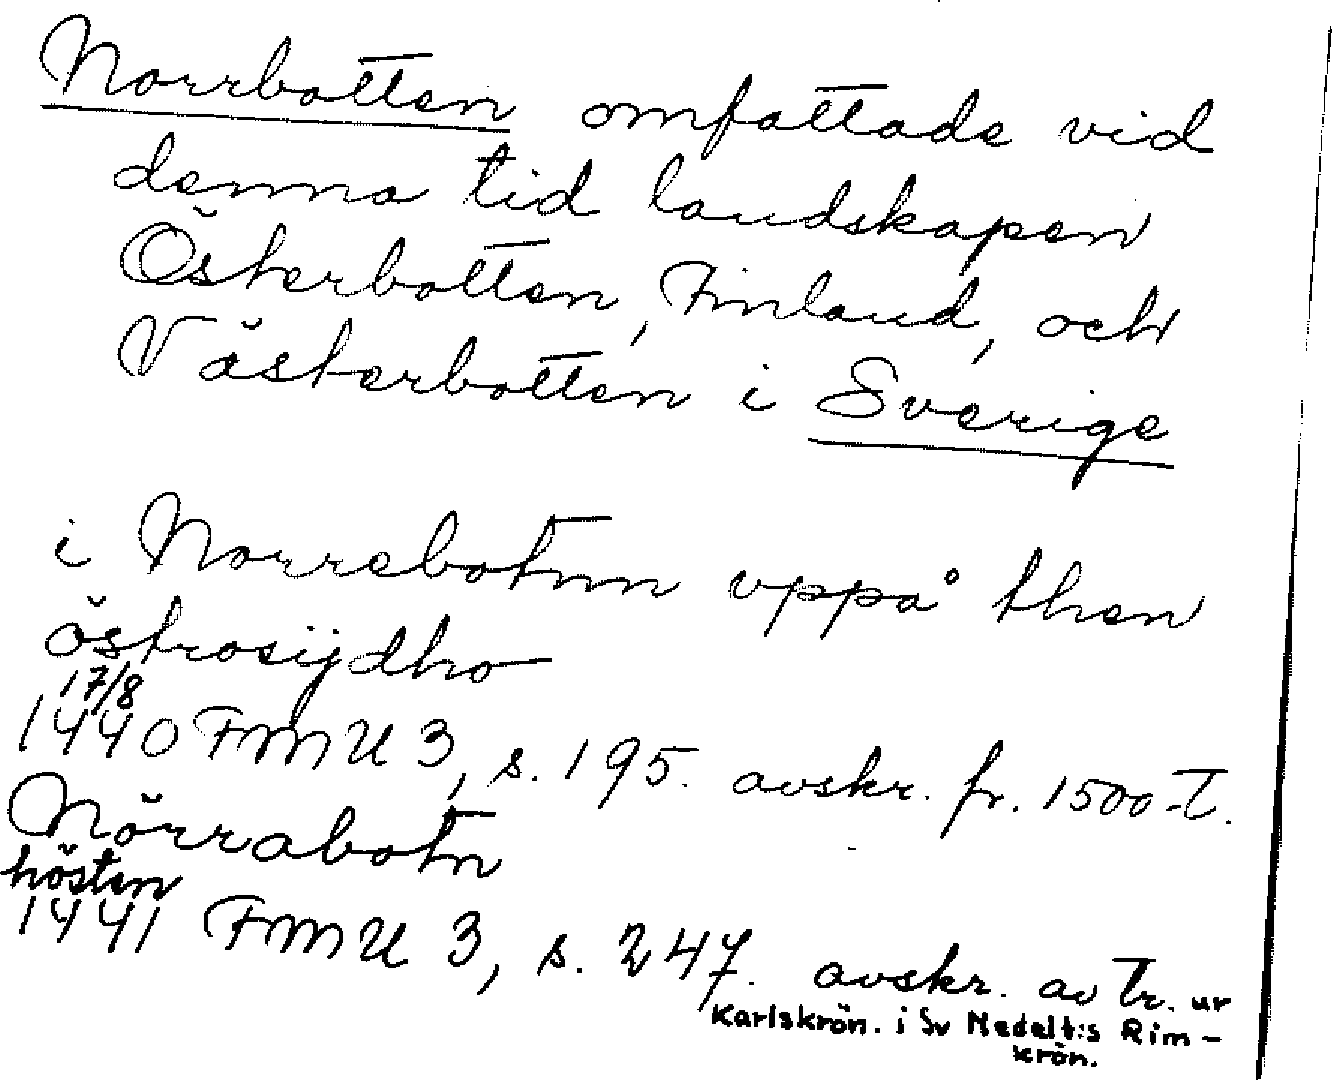 Norrbotten omfattade vid
denna tid landskapen
Österbotten, Finland, och
Västerbotten i Sverige
i Norrebotnn vppå then
östrosijdho
17/8
1440 FMU 3, s. 195. avskr. fr. 1500-t.
Nörrabotn
hösten
1441 FMU 3, s. 247. avskr. av tr. ur
Karlskrön. i Sv Medelt:s Rim-
krön.